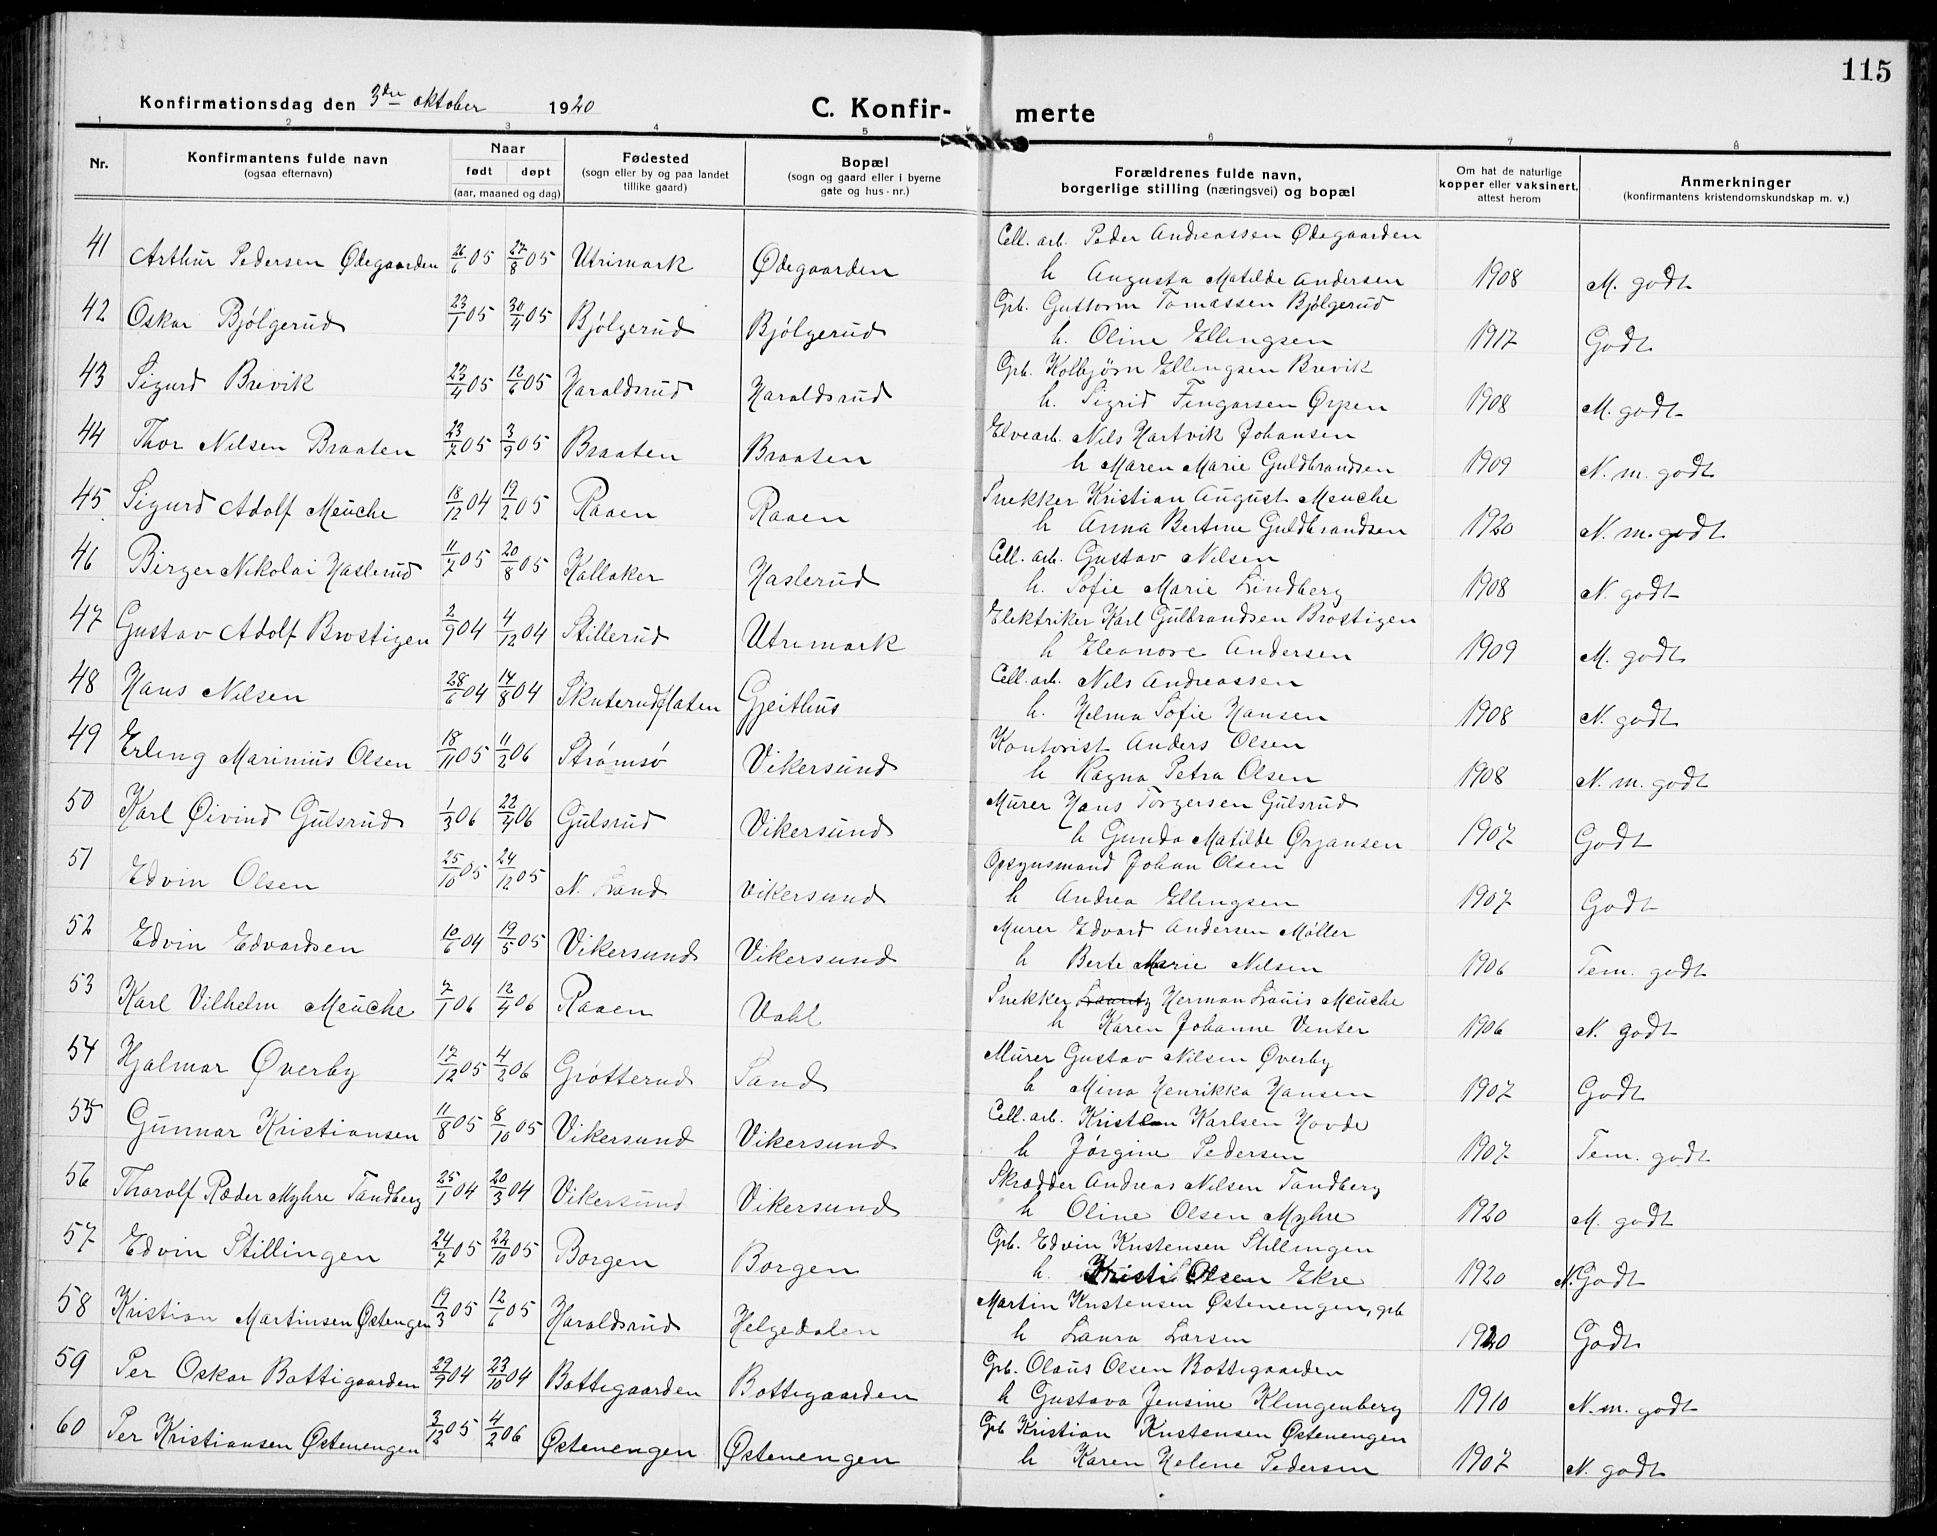 115
Konfirmationsdag den 3die oktober 1920 C. Konfir- merte
1 2 3 4 5 6 7 8
Nr. Konfirmantens fulde navn (ogsaa efternavn) Naar født døpt (aar, maaned og dag) Fødested (sogn eller by og paa landet tillike gaard) Bopæl (sogn og gaard eller i byerne gate og hus-nr.) Forældrenes fulde navn, borgerlige stilling (næringsvei) og bopæl Om hat de naturlige kopper eller vaksinert, attest herom Anmerkninger (konfirmantens kristendomskundskap m. v.)
Cell. arb. Peder Andreassen Ødegaarden
41 Arthur Pedersen Ødegaarden 26/6 05 27/8 05 Utrimark Ødegaarden h Augusta Matilde Andersen 1908 M. godt
Gpb. Guttorm Tomassen Bjølgerud
42 Oskar Bjølgerud 23/1 05 30/4 05 Bjølgerud Bjølgerud h. Oline Ellingsen 1917 Godt
Gpb. Kolbjørn Ellingsen Brevik
43 Sigurd Brevik 23/4 05 12/6 05 Haraldsrud Haraldsrud h. Sigrid Fingarsen Ørpen 1908 M. godt
Elvearb. Nils Hartvik Johansen
44 Thor Nilsen Braaten 23/7 05 3/9 05 Braaten Braaten h Maren Marie Guldbrandsen 1909 N. m. godt
Snekker Kristian August Meuche
45 Sigurd Adolf Meuche 18/12 04 19/2 05 Raaen Raaen h Anna Bertine Guldbrandsen 1920 N. m. godt
Cell. arb. Gustav Nilsen
46 Birger Nikolai Haslerud 11/7 05 20/8 05 Kallaker Haslerud h. Sofie Marie Lindberg 1908 N. godt
Elektriker Karl Gulbrandsen Brostigen
47 Gustav Adolf Brostigen 2/9 04 4/12 04 Stillerud Utrimark h Eleonore Andersen 1909 M. godt
Cell. arb. Nils Andreassen
48 Hans Nilsen 28/6 04 14/8 04 Skuterudflaten Gjeithus h. Helma Sofie Hansen 1908 N. godt
Kontorist Anders Olsen
49 Erling Marinius Olsen 18/11 05 11/2 06 Strømsø Vikersund h Ragna Petra Olsen 1908 N. m. godt
Murer Hans Torgersen Gulsrud
50 Karl Øivind Gulsrud 1/3 06 22/4 06 Gulsrud Vikersund h Gunda Matilde Ørjansen 1907 Godt
Opsynsmand Johan Olsen
51 Edvin Olsen 25/10 05 24/12 05 N. Land Vikersund h Andrea Ellingsen 1907 Godt
Murer Edvard Andersen Møller
52 Edvin Edvardsen 10/6 04 19/5 05 Vikersund Vikersund h Berte Marie Nilsen 1906 Tem. godt
Snekker Lauritz Herman Louis Meuche
53 Karl Vilhelm Meuche 7/1 06 12/4 06 Raaen Vahl h Karen Johanne Venter 1906 N. godt
Murer Gustav Nilsen Øverby
54 Hjalmar Øverby 17/12 05 4/2 06 Grøtterud Sand h Mina Henrikka Hansen 1907 Godt
Cell. arb. Kristian Karlsen Hovde
55 Gunnar Kristiansen 11/8 05 8/10 05 Vikersund Vikersund h Jørgine Pedersen 1907 Tem. godt
Skrædder Andreas Nilsen Tandberg
56 Thorolf Ræder Myhre Tandberg 25/1 04 20/3 04 Vikersund Vikersund h Oline Olsen Myhre 1920 M. godt
Gpb. Edvin Kristensen Stillingen
57 Edvin Stillingen 24/7 05 22/10 05 Borgen Borgen h. Kristi Olsen Ekre 1920 N. Godt
Martin Kristensen Østenengen, gpb
58 Kristian Martinsen Østengen 19/3 05 12/6 05 Haraldsrud Helgedalen h Laura Larsen 1920 Godt
Gpb. Olaus Olsen Bottegaarden
59 Per Oskar Bottigaarden 29/9 04 23/10 04 Bottegaarden Bottegaarden h Gustava Jensine Klingenberg 1910 N. m. godt
Gpb Kristian Kristensen Østenengen
60 Per Kristiansen Østenengen 3/12 05 4/2 06 Østenengen Østenengen h Karen Helene Pedersen 1907 N. godt